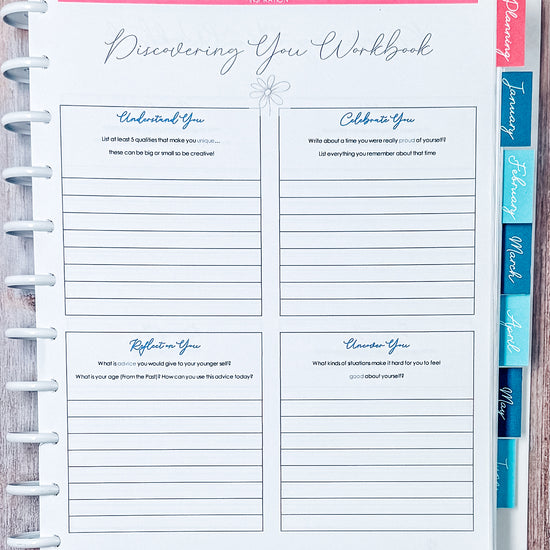 INSPIRATION
Discovering You Workbook
Understand You
List at least 5 qualities that make you unique...
these can be big or small so be creative!
Celebrate You
Write about a time you were really proud of yourself?
List everything you remember about that time
Reflect on You
What is advice you would give to your younger self?
What is your age (From the Past)? How can you use this advice today?
Uncover You
What kinds of situations make it hard for you to feel
good about yourself?
Planning
January
February
March
April
May
June